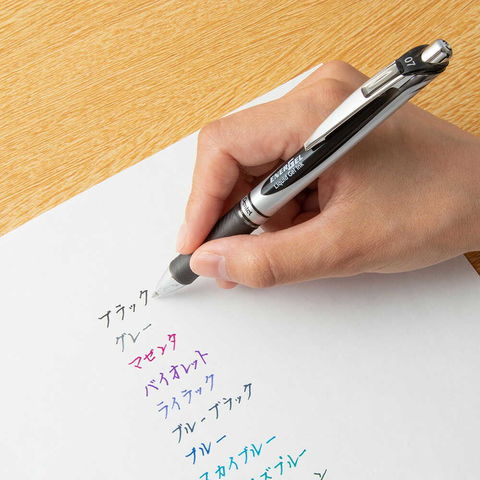 07
ENERGEL
Liquid Gel Ink
ブラック
グレー
マゼンタ
バイオレット
ライラック
ブルーブラック
ブルー
スカイブルー
ズブルー
ン